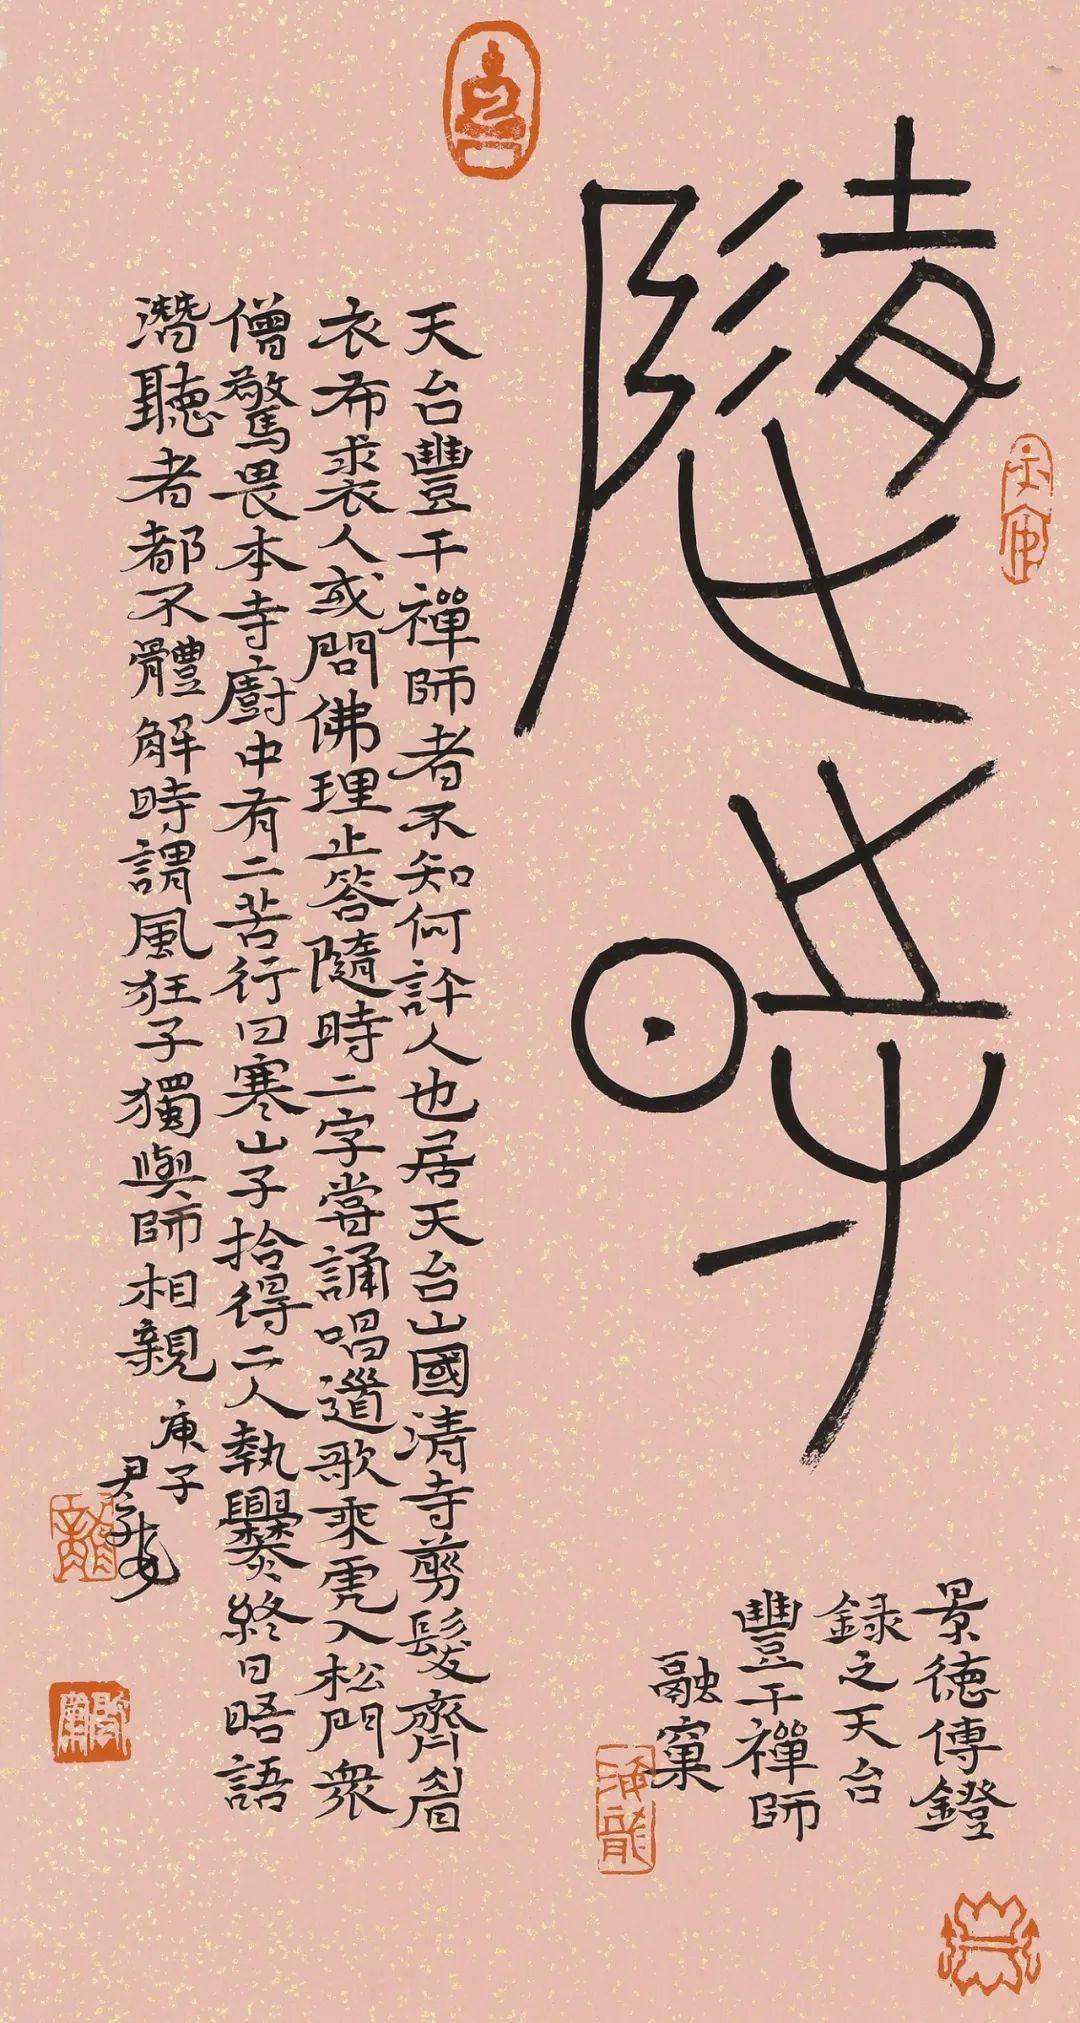 隨時
景德傳鐙
録之天台
豐干禪師
融窠
天台豐干禪師者不知何許人也居天台山國清寺剪髮齊眉
衣布裘人或問佛理止答隨時二字嘗誦唱道歌乘虎入松門衆
僧驚畏本寺廚中有二苦行曰寒山子拾得二人執爨終日晤語
潛聽者都不體解時謂風狂子獨與師相親
庚子
尹海龍
海龍